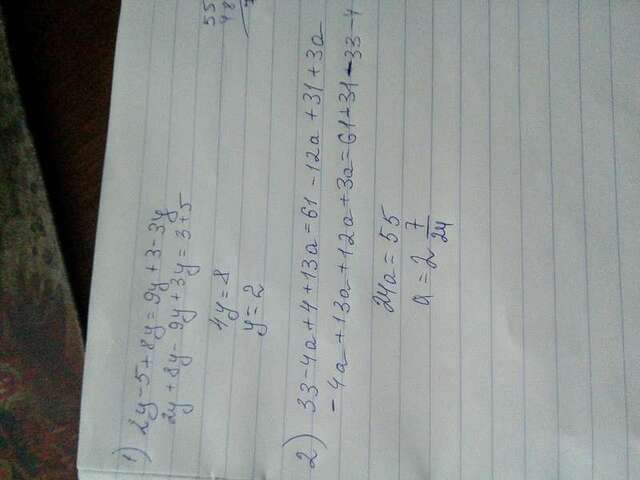 1) 2y-5+8y=9y+3-3y
2y+8y-9y+3y=3+5
4y=8
y=2
55
48
7
2) 33-4a+4+13a=61-12a+31+3a
-4a+13a+12a+3a=61+31-33-4
24a=55
a=2 7/24